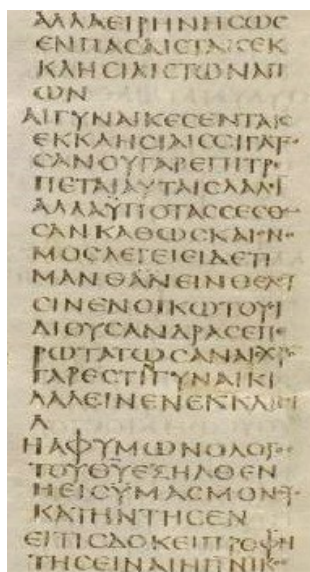 ΑΛΛΑΕΙΡΗΝΗϹΩϹ
ΕΝΠΑϹΑΙϹΤΑΙϹΕΚ
ΚΛΗϹΙΑΙϹΤΩΝΑΓΙ
ΩΝ
ΑΙΓΥΝΑΙΚΕϹΕΝΤΑΙϹ
ΕΚΚΛΗϹΙΑΙϹϹΙΓΑΤ
ϹΑΝΟΥΓΑΡΕΠΙΤΡ
ΠΕΤΑΙΑΥΤΑΙϹΛΑΛΙ
ΑΛΛΑΫΠΟΤΑϹϹΕϹΘ
ϹΑΝΚΑΘΩϹΚΑΙΝ
ΜΟϹΛΕΓΕΙΕΙΔΕΤΙ
ΜΑΝΘΑΝΕΙΝΘΕΛΟΥ
ϹΙΝΕΝΟΙΚΩΤΟΥΙ
ΔΙΟΥϹΑΝΔΡΑϹΕΠΕ
ΡΩΤΑΤΩϹΑΝΑΙϹΧΡ
ΓΑΡΕϹΤΙΓΥΝΑΙΚΙ
ΛΑΛΕΙΝΕΝΕΚΚΛΗϹΙ
Α
ΗΑΦΥΜΩΝΟΛΟΓ
ΤΟΥΘΥΕΞΗΛΘΕΝ
ΗΕΙϹΥΜΑϹΜΟΝ
ΚΑΤΗΝΤΗϹΕΝ
ΕΙΤΙϹΔΟΚΕΙΠΡΟΦΗ
ΤΗϹΕΙΝΑΙΗΠΝΙΚ